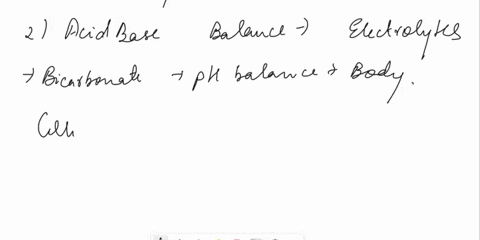 2) Acid Base Balance → Electrolytes
→ Bicarbonate → pH balance → Body.
Cell